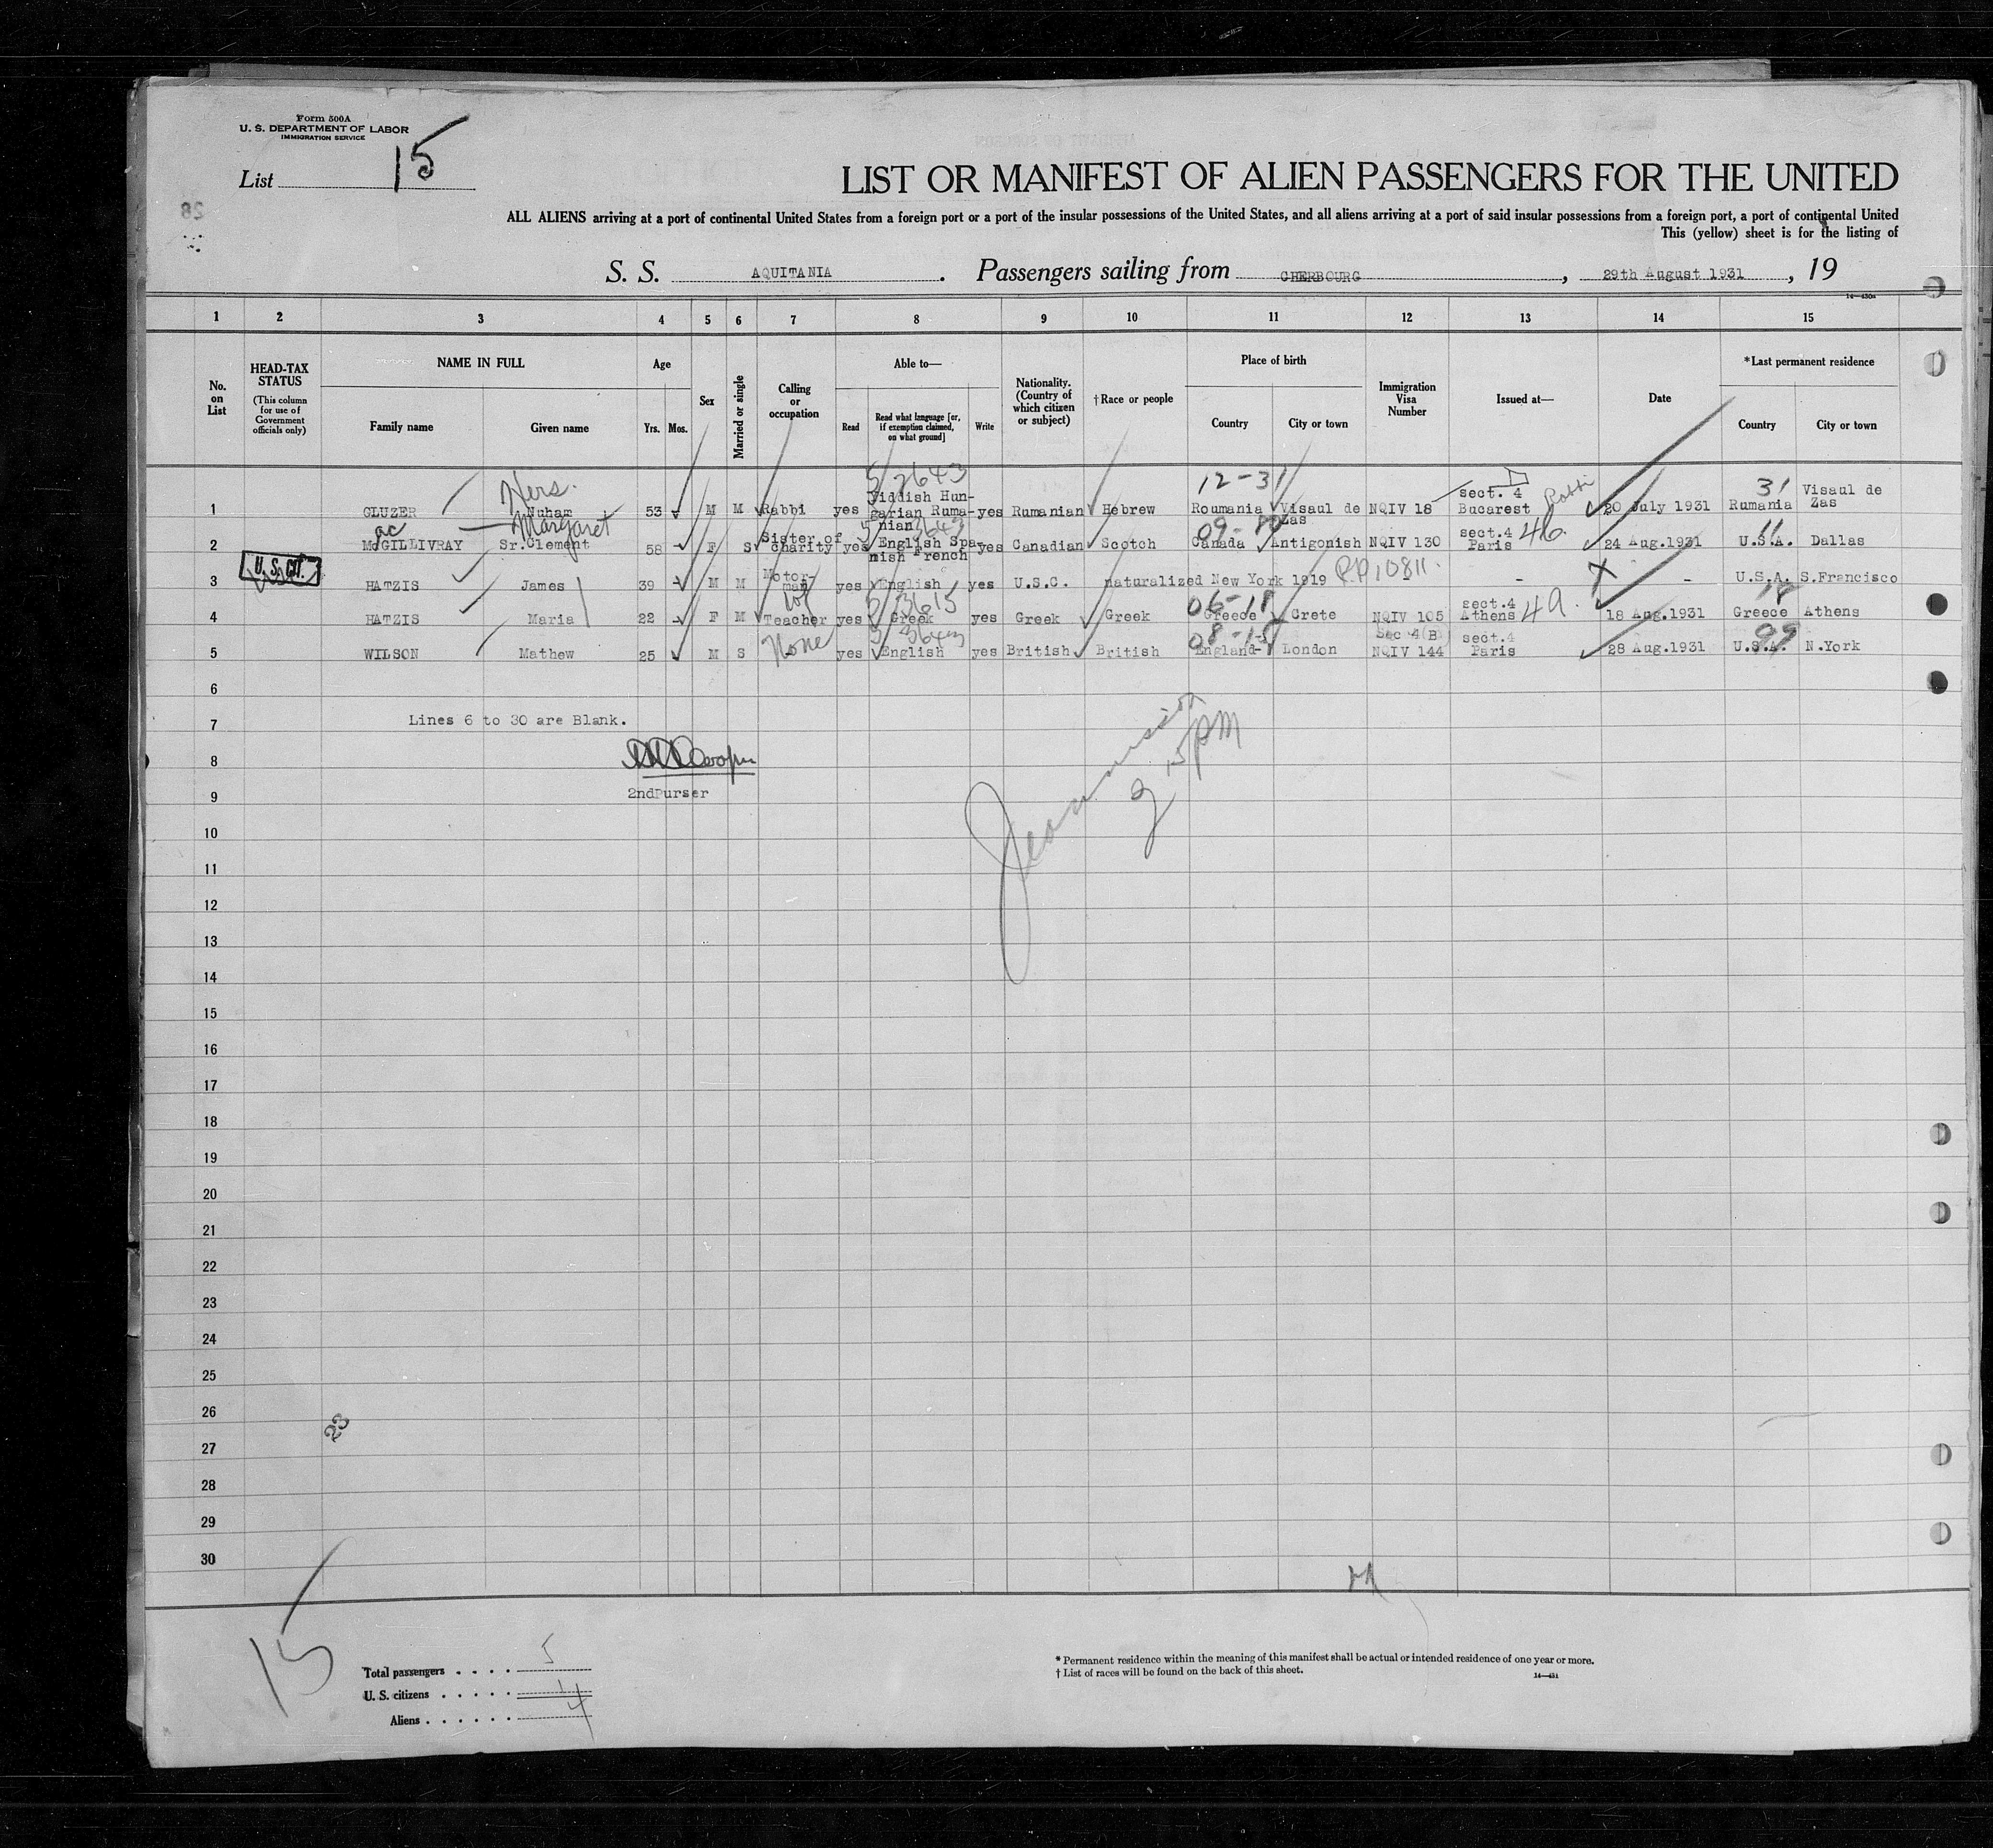 Form 500A
U. S. DEPARTMENT OF LABOR
IMMIGRATION SERVICE
List 15
28
LIST OR MANIFEST OF ALIEN PASSENGERS FOR THE UNITED
ALL ALIENS arriving at a port of continental United States from a foreign port or a port of the insular possessions of the United States, and all aliens arriving at a port of said insular possessions from a foreign port, a port of continental United
This (yellow) sheet is for the listing of
S. S. AQUITANIA. Passengers sailing from CHERBOURG, 29th August 1931, 19
14—430a
1 2 3 4 5 6 7 8 9 10 11 12 13 14 15
No. on List
HEAD-TAX STATUS (This column for use of Government officials only)
NAME IN FULL
Family name Given name
Age
Yrs. Mos.
Sex
Married or single
Calling or occupation
Able to—
Read Read what language [or, if exemption claimed, on what ground] Write
Nationality. (Country of which citizen or subject)
†Race or people
Place of birth
Country City or town
Immigration Visa Number
Issued at—
Date
*Last permanent residence
Country City or town
Hers. 5/2643 12-31 Rabbi 31
1 GLUZER Nuham 53 M M Rabbi yes Yiddish Hungarian Rumanian yes Rumanian Hebrew Roumania Visaul de Zas NQIV 18 sect. 4 Bucarest 20 July 1931 Rumania Visaul de Zas
ac Margaret 46. 11
2 McGILLIVRAY Sr.Clement 58 F S Sister of charity yes English Spanish French yes Canadian Scotch Canada Antigonish NQIV 130 sect.4 Paris 24 Aug.1931 U.S.A. Dallas
U.S. CIT.
3 HATZIS James 39 M M Motorman yes English yes U.S.C. naturalized New York 1919 P.P.10811. - X - U.S.A. S.Francisco
Wf 5/3615 06-18 49. 18
4 HATZIS Maria 22 F M Teacher yes Greek yes Greek Greek Greece Crete NQIV 105 sect.4 Athens 18 Aug.1931 Greece Athens
None 08-15 99
5 WILSON Mathew 25 M S yes English yes British British England London Sec 4(B) NQIV 144 sect.4 Paris 28 Aug.1931 U.S.A. N.York
6
7 Lines 6 to 30 are Blank.
8
9 2ndPurser
10
11
12
13
14
15
16
17
18
19
20
21
22
23
24
25
26
23
27
28
29
30
15
Total passengers . . . . 5
U. S. citizens . . . . . 1
Aliens . . . . . . 4
* Permanent residence within the meaning of this manifest shall be actual or intended residence of one year or more.
† List of races will be found on the back of this sheet.
14—431